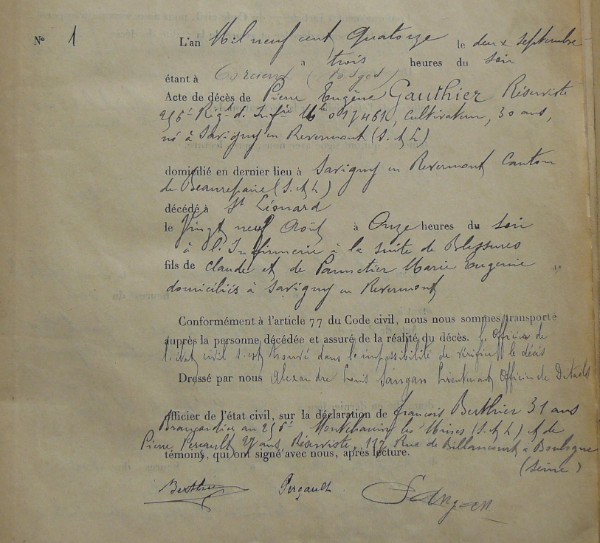 N° 1
L'an Mil neuf cent Quatorze le deux septembre
à trois heures du soir
étant à (Vosges)
Acte de décès de Pierre Eugène Gauthier Réserviste
256e Rgt d'Infie Mle 017461, cultivateur, 30 ans,
né à Savigny en Revermont (S. & L)
domicilié en dernier lieu à Savigny en Revermont Canton
de Beaurepaire (S. & L)
décédé à St Léonard
le Vingt neuf Août à Onze heures du soir
à l'Infirmerie à la suite de Blessures
fils de Claude et de Pannetier Marie Eugénie
domiciliés à Savigny en Revermont
Conformément à l'article 77 du Code civil, nous nous sommes transporté
auprès la personne décédée et assuré de la réalité du décès. L'Officier de
l'état civil s'est trouvé dans l'impossibilité de vérifier le décès
Dressé par nous Alexandre Louis Sangan Lieutenant Officier de Détails
officier de l'état civil, sur la déclaration de François Berthier 31 ans
Brancardier au 256e Montchanin les Mines (S. & L) et de
Pierre Perrault ans, Réserviste, 117 Rue de Billancourt à Boulogne
témoins, qui ont signé avec nous, après lecture. (Seine)
Berthier Perrault Sangan